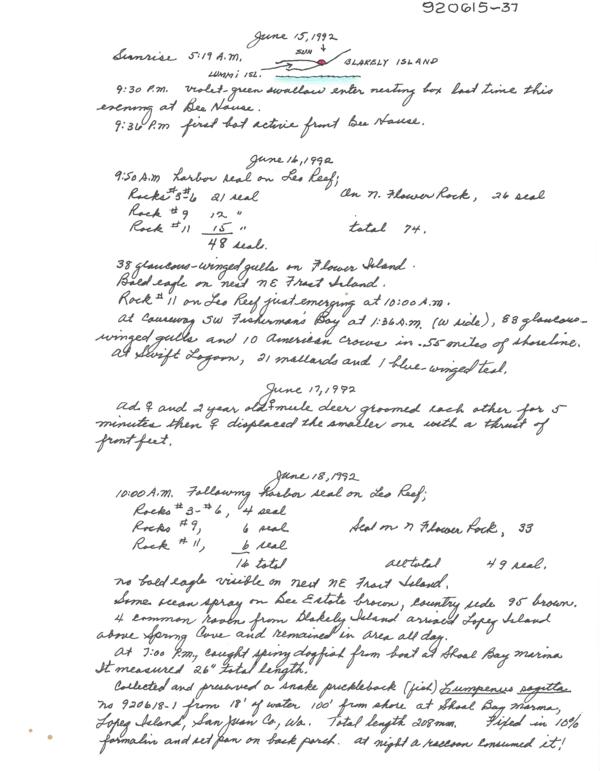 920615-37
June 15, 1992
Sunrise 5:19 A.M.
SUN
BLAKELY ISLAND
LUMMI ISL.
9:30 P.M. violet-green swallow enter nesting box last time this
evening at Bee House.
9:36 P.m first bat active front Bee House.
June 16, 1992
9:50 A.M harbor seal on Leo Reef;
Rocks #3-#6 21 seal On N. Flower Rock, 26 seal
Rock #9 12 "
Rock #11 15 " total 74.
48 seals.
38 glaucous-winged gulls on Flower Island.
Bald eagle on nest NE Frost Island.
Rock #11 on Leo Reef just emerging at 10:00 A.m.
At Causeway SW Fisherman's Bay at 1:36 A.m. (W side), 88 glaucous-
winged gulls and 10 American Crows in .55 miles of shoreline.
At Swift Lagoon, 21 mallards and 1 blue-winged teal.
June 17, 1992
Ad ♀ and 2 year old ♀ mule deer groomed each other for 5
minutes then ♀ displaced the smaller one with a thrust of
front feet.
June 18, 1992
10:00 A.M. Following harbor seal on Leo Reef;
Rocks #3-#6, 4 seal
Rocks #9, 6 seal Seal on N Flower Rock, 33
Rock #11, 6 seal
16 total all total 49 seal.
No bald eagle visible on nest NE Frost Island.
Some ocean spray on Bee Estate brown, country side 95 brown.
4 common raven from Blakely Island arrived Lopez Island
above Spring Cove and remained in area all day.
At 7:00 P.m., caught spiny dogfish from boat at Shoal Bay marina
It measured 26" total length.
Collected and preserved a snake prickleback (fish) Lumpenus sagitta
no 920618-1 from 18' of water 100' from shore at Shoal Bay Marina,
Lopez Island, San Juan Co, Wa. Total length 208mm. Fixed in 10%
formalin and set pan on back porch. at night a raccoon consumed it!